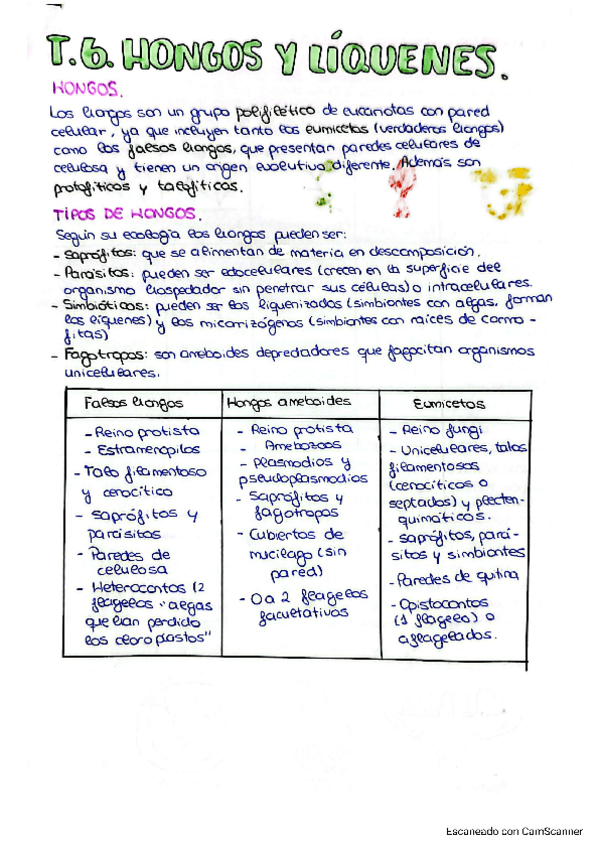 T.6. HONGOS Y LÍQUENES.
HONGOS.
Los hongos son un grupo polifilético de eucariotas con pared
celular, ya que incluyen tanto los eumicetos (verdaderos hongos)
como los falsos hongos, que presentan paredes celulares de
celulosa y tienen un origen evolutivo diferente. Además son
protofíticos y talofíticos.
TIPOS DE HONGOS.
Según su ecología los hongos pueden ser:
- Saprófitos: que se alimentan de materia en descomposición.
- Parásitos: pueden ser edocelulares (crecen en la superficie del
organismo hospedador sin penetrar sus células) o intracelulares.
- Simbióticos: pueden ser los liquenizados (simbiontes con algas, forman
los líquenes) y los micorrizógenos (simbiontes con raíces de cormo-
fitas)
- Fagotropos: son ameboides depredadores que fagocitan organismos
unicelulares.
Falsos hongos
- Reino protista
- Estramenopilos
- Talo filamentoso
y cenocítico
- saprófitos y
parásitos
- Paredes de
celulosa
- Heterocontos (2
flagelos "algas
que han perdido
los cloroplastos"
Hongos ameboides
- Reino protista
- Amebozoos
- Plasmodios y
pseudoplasmodios
- Saprófitos y
fagotropos
- Cubiertos de
mucílago (sin
pared)
- 0 a 2 flagelos
facultativos
Eumicetos
- Reino fungi
- Unicelulares, talos
filamentosos
(cenocíticos o
septados) y plecten-
quimáticos.
- saprófitos, pará-
sitos y simbiontes
- Paredes de quitina
- Opistocontos
(1 flagelo) o
aflagelados.
Escaneado con CamScanner